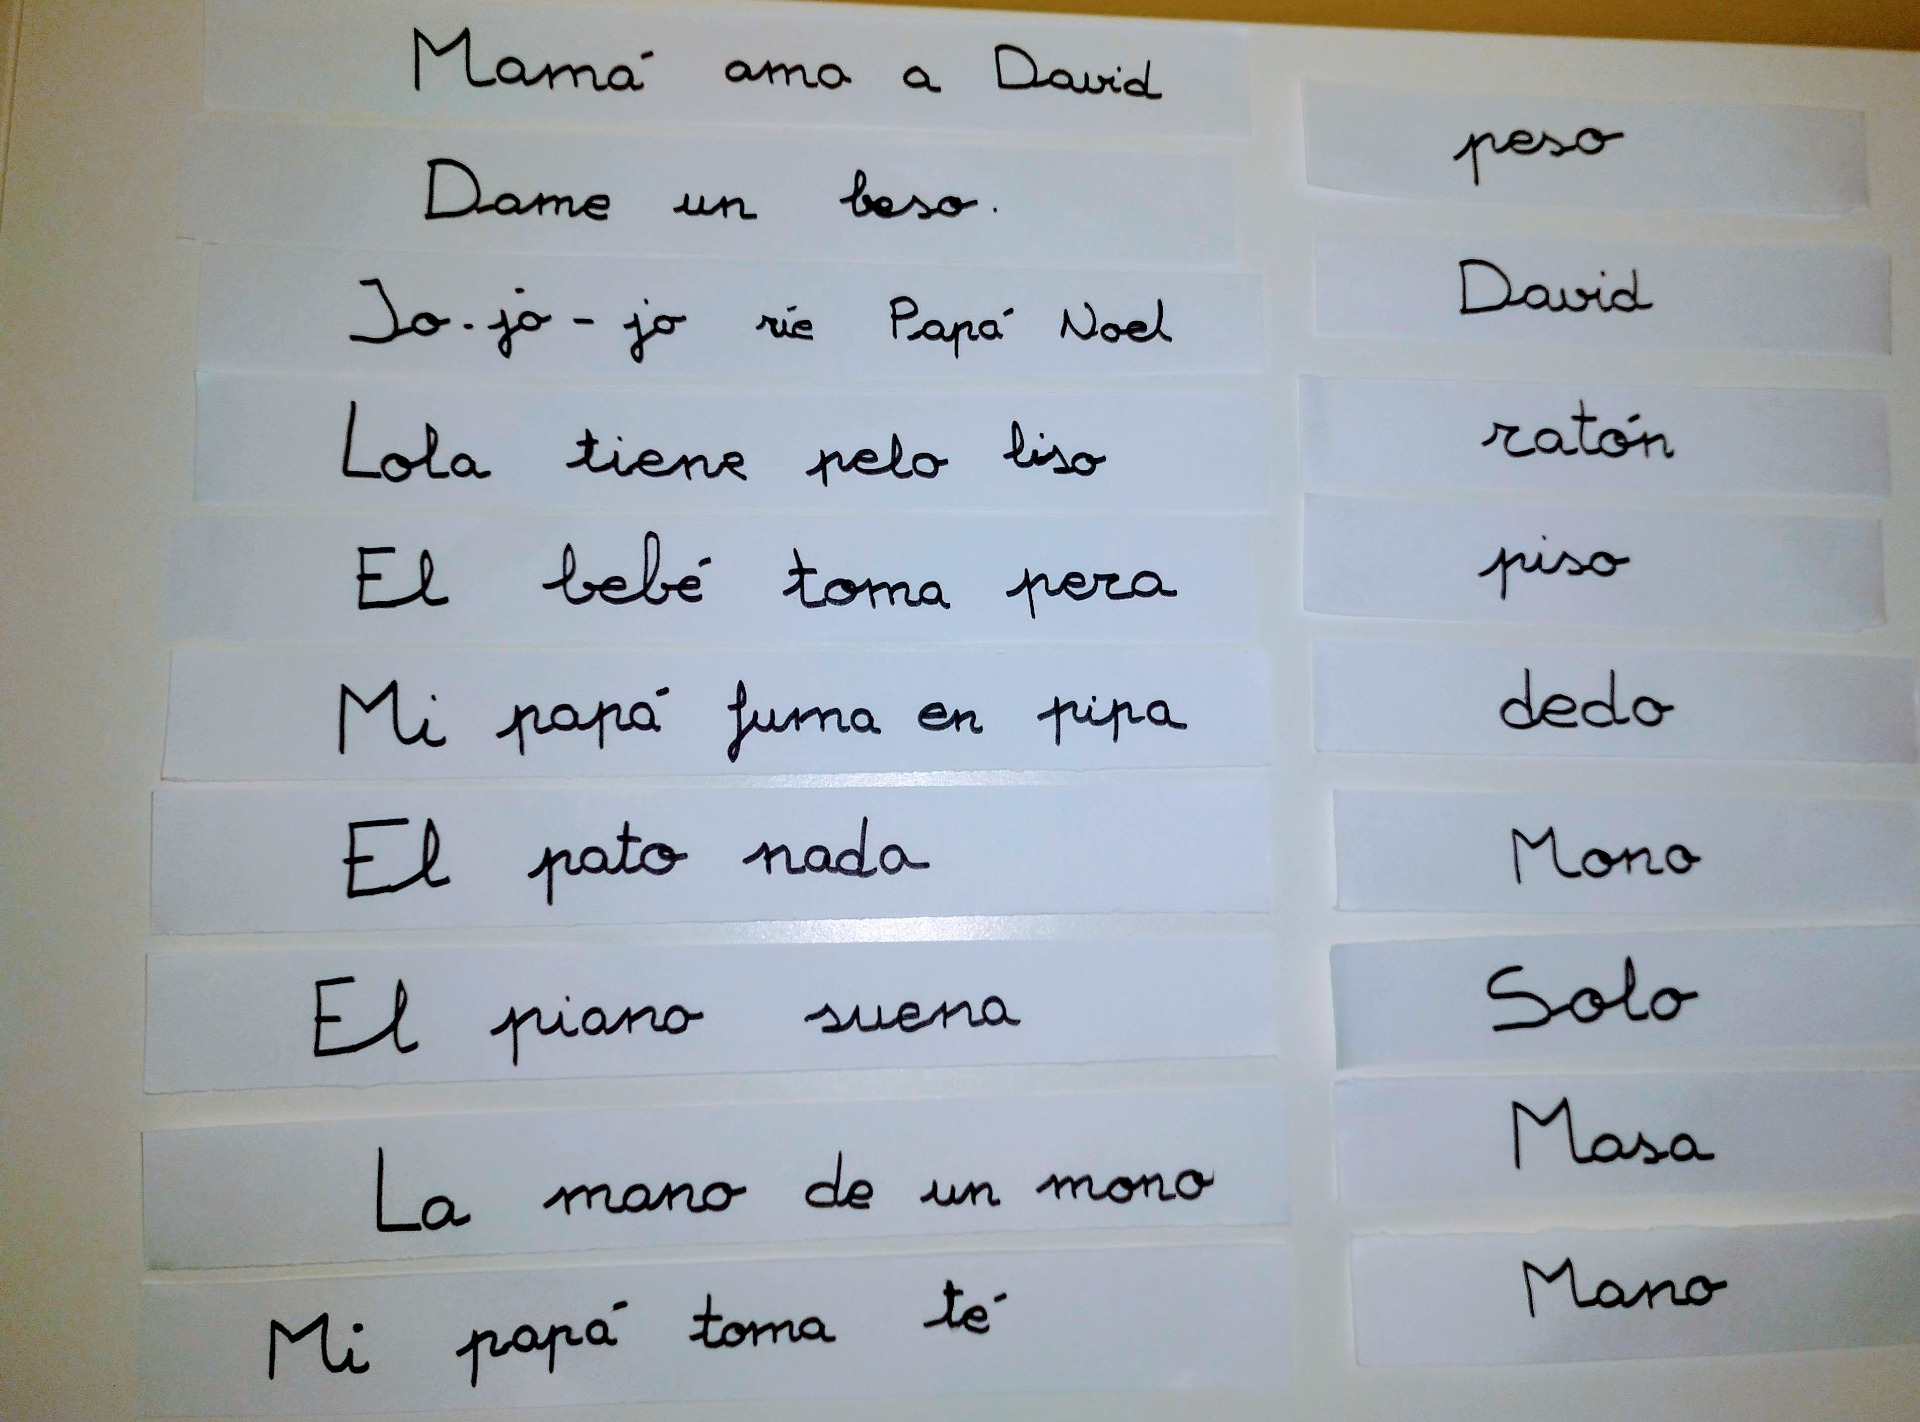 Mamá ama a David
Dame un beso.
Jo-jo-jo ríe Papá Noel
Lola tiene pelo liso
El bebé toma pera
Mi papá fuma en pipa
El pato nada
El piano suena
La mano de un mono
Mi papá toma té
peso
David
ratón
piso
dedo
Mono
Solo
Masa
Mano